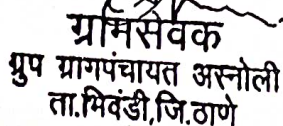 ग्रामसेवक
ग्रुप ग्रामपंचायत अस्नोली
ता.भिवंडी,जि.ठाणे